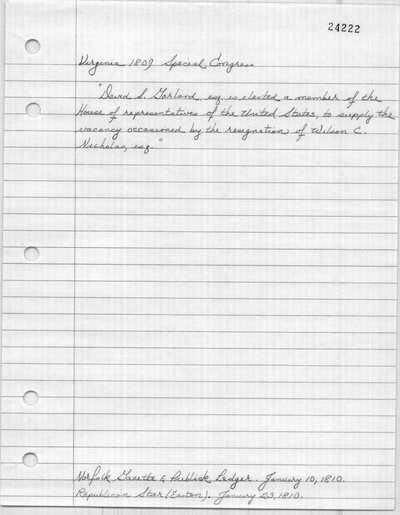 24222
Virginia 1809 Special Congress
"David S. Garland, esq. is elected a member of the
House of representatives of the United States, to supply the
vacancy occasioned by the resignation of Wilson C.
Nicholas, esq."
Norfolk Gazette & Publick Ledger. January 10, 1810.
Republican Star (Easton). January 23, 1810.